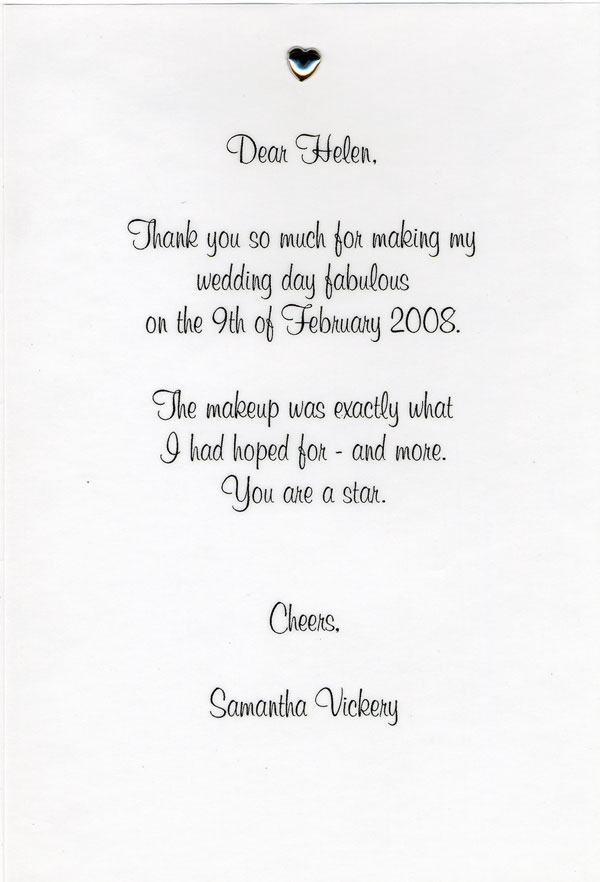 Dear Helen,
Thank you so much for making my
wedding day fabulous
on the 9th of February 2008.
The makeup was exactly what
I had hoped for - and more.
You are a star.
Cheers,
Samantha Vickery